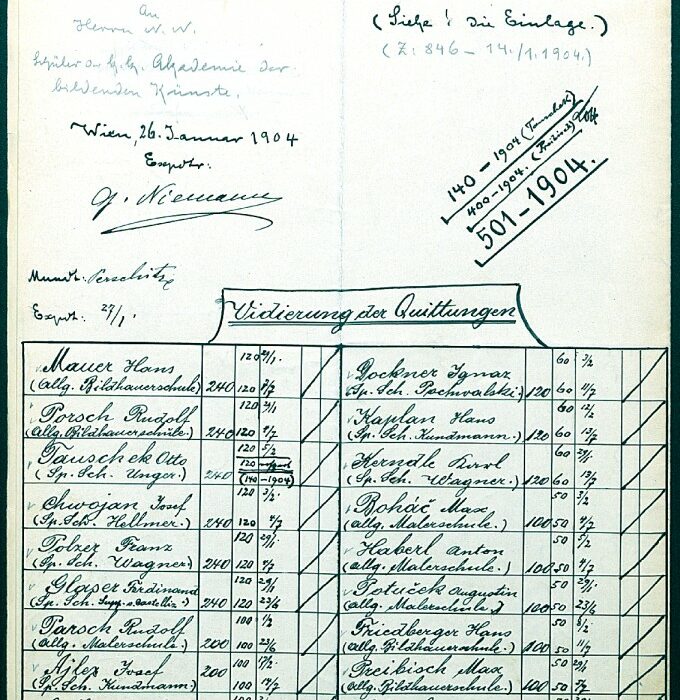 An
Herrn N. N.
Schüler der k.k. Akademie der
bildenden Künste.
Wien, 26. Januar 1904
Expdr:
G. Niemann
Mundt:
Expdt: 27/1.
(Siehe! Die Einlage.)
(Z: 846 – 14./1.1904.)
140 – 1904 (Tauschek)
400 – 1904. (Preibisch)
501 – 1904.
Vidierung der Quittungen
Mauer Hans 120 29/1.
(Allg. Bildhauerschule) 240 120 8/7
Porsch Rudolf 120
(Allg. Bildhauerschule.) 240 120 4/7
Tauschek Otto 120 5/2
(Sp. Sch. Unger.) 240 120
(140 – 1904)
Chwojan Josef 120 3/2.
(Sp. Sch. Hellmer.) 240 120 4/7
Polzer Franz 120 29/1
(Sp. Sch. Wagner) 240 120 4/7
Glaser Ferdinand 120 29/1
(Sp. Sch. 240 120 23/6
Parsch Rudolf 100 1/2
(Allg. Malerschule.) 200 100 23/6
Josef 200 100 17/2.
(Sp. Sch. Kundmann.) 100 14/7
Dockner Ignaz 60 3/2
(Sp. Sch. Pochwalski.) 120 60 11/7
Kaplan Hans 60 12/2
(Sp. Sch. Kundmann.) 120 60 13/7
Kerndle Karl 60 29/1.
(Sp. Sch. Wagner.) 120 60 13/7
Boháč Max 50 3/2
(Allg. Malerschule.) 100 50 4/7
Haberl Anton 50 5/2
(Allg. Malerschule.) 100 50 4/7
Potuček Augustin 50 29/1.
(Allg. Malerschule.) 100 50 23/6
Friedberger Hans 50
(Allg. Bildhauerschule.) 100 50 11/7
Preibisch Max 50 29/1
(Allg. Bildhauerschule.) 100 50